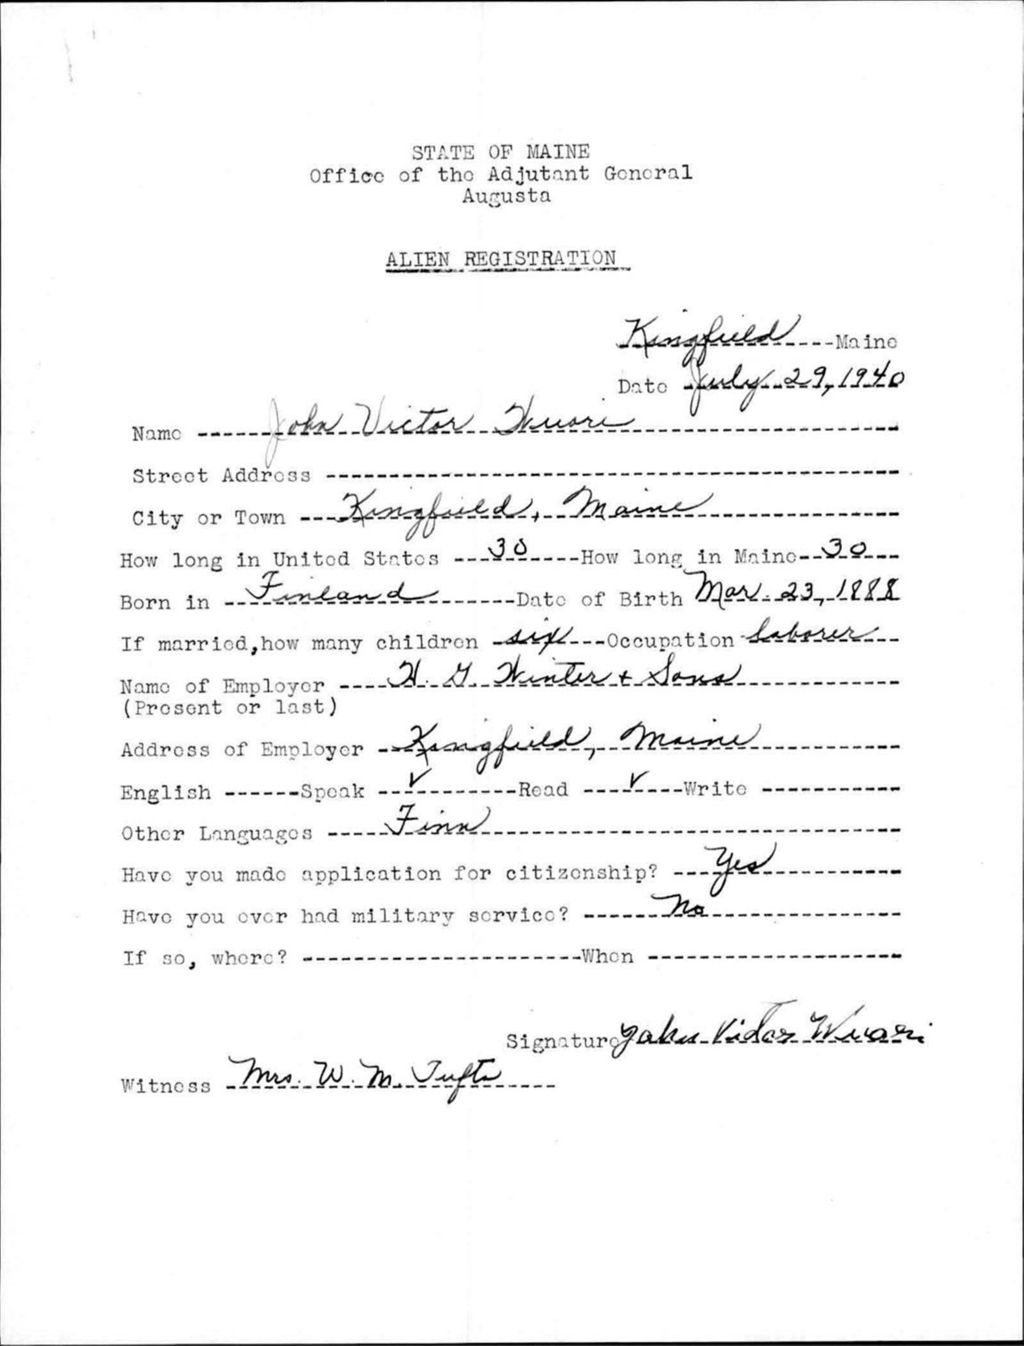 STATE OF MAINE
Office of the Adjutant General
Augusta
ALIEN REGISTRATION
Kingfield Maine
Date July 29, 1940
Name John Victor Wuori
Street Address
City or Town Kingfield, Maine
How long in United States 30 How long in Maine 30
Born in Finland Date of Birth Mar. 23, 1888
If married, how many children six Occupation laborer
Name of Employer H. G. Winter & Sons
(Present or last)
Address of Employer Kingfield, Maine
English Speak ✓ Read ✓ Write
Other Languages Finn
Have you made application for citizenship? Yes
Have you ever had military service? No
If so, where? When
Signature Wuori
Witness Mrs. W. M. Tufts